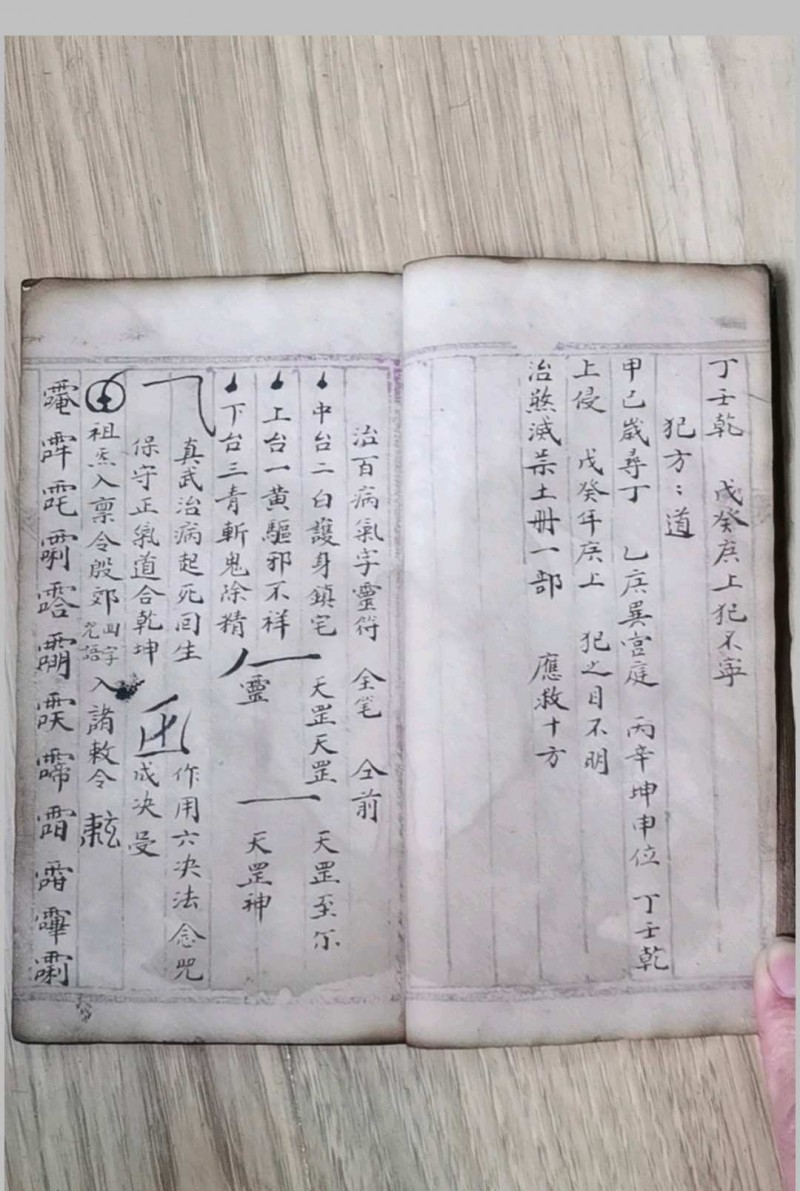 丁壬乾　戊癸庚上犯不寧
犯方：道
甲己歲尋丁　乙庚巽宫庭　丙辛坤申位　丁壬乾
上侵　戊癸年庚上　犯之目不明
治煞滅祟土冊一部　應救十方
治百病氣字靈符　全笔　仝前
中台二白護身鎮宅　天罡天罡　天罡至尔
上台一黃驅邪不祥
下台三青斬鬼除精　靈　天罡神
真武治病起死回生　作用六决法念咒
保守正氣道合乾坤　成决受
祖炁入禀令殷郊四字咒語入諸敕令